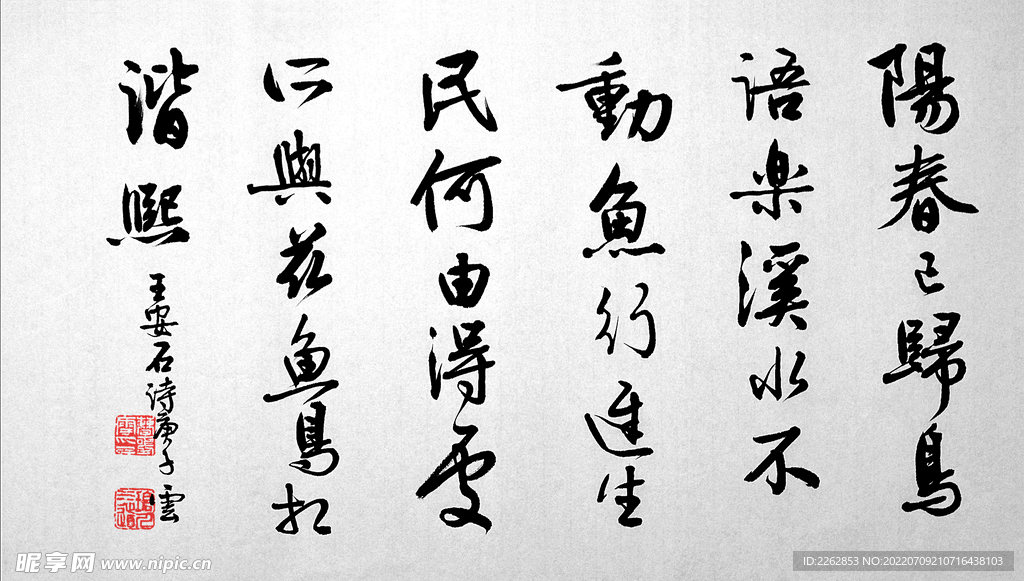 陽春已歸鳥
語楽溪水不
動魚行進生
民何由得處
所與茲魚鳥相
諧熙
王安石詩庚子雲
昵享网 www.nipic.cn
ID:2262853 NO:20220709210716438103